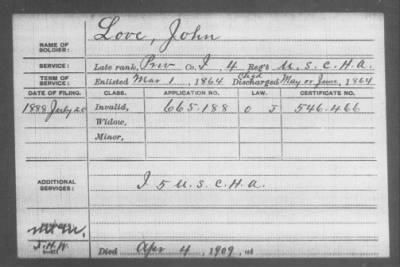 NAME OF SOLDIER: Love, John
SERVICE: Late rank, Priv Co. I, 4 Reg't U.S.C.H.A.
TERM OF SERVICE: Enlisted Mar 1, 1864 Discharged May or June, 1864
DATE OF FILING. CLASS. APPLICATION NO. LAW. CERTIFICATE NO.
1888 July 20 Invalid, 665.188 O J 546.466
Widow,
Minor,
ADDITIONAL SERVICES: I 5 U.S.C.H.A.
Died Apr 4, 1909,